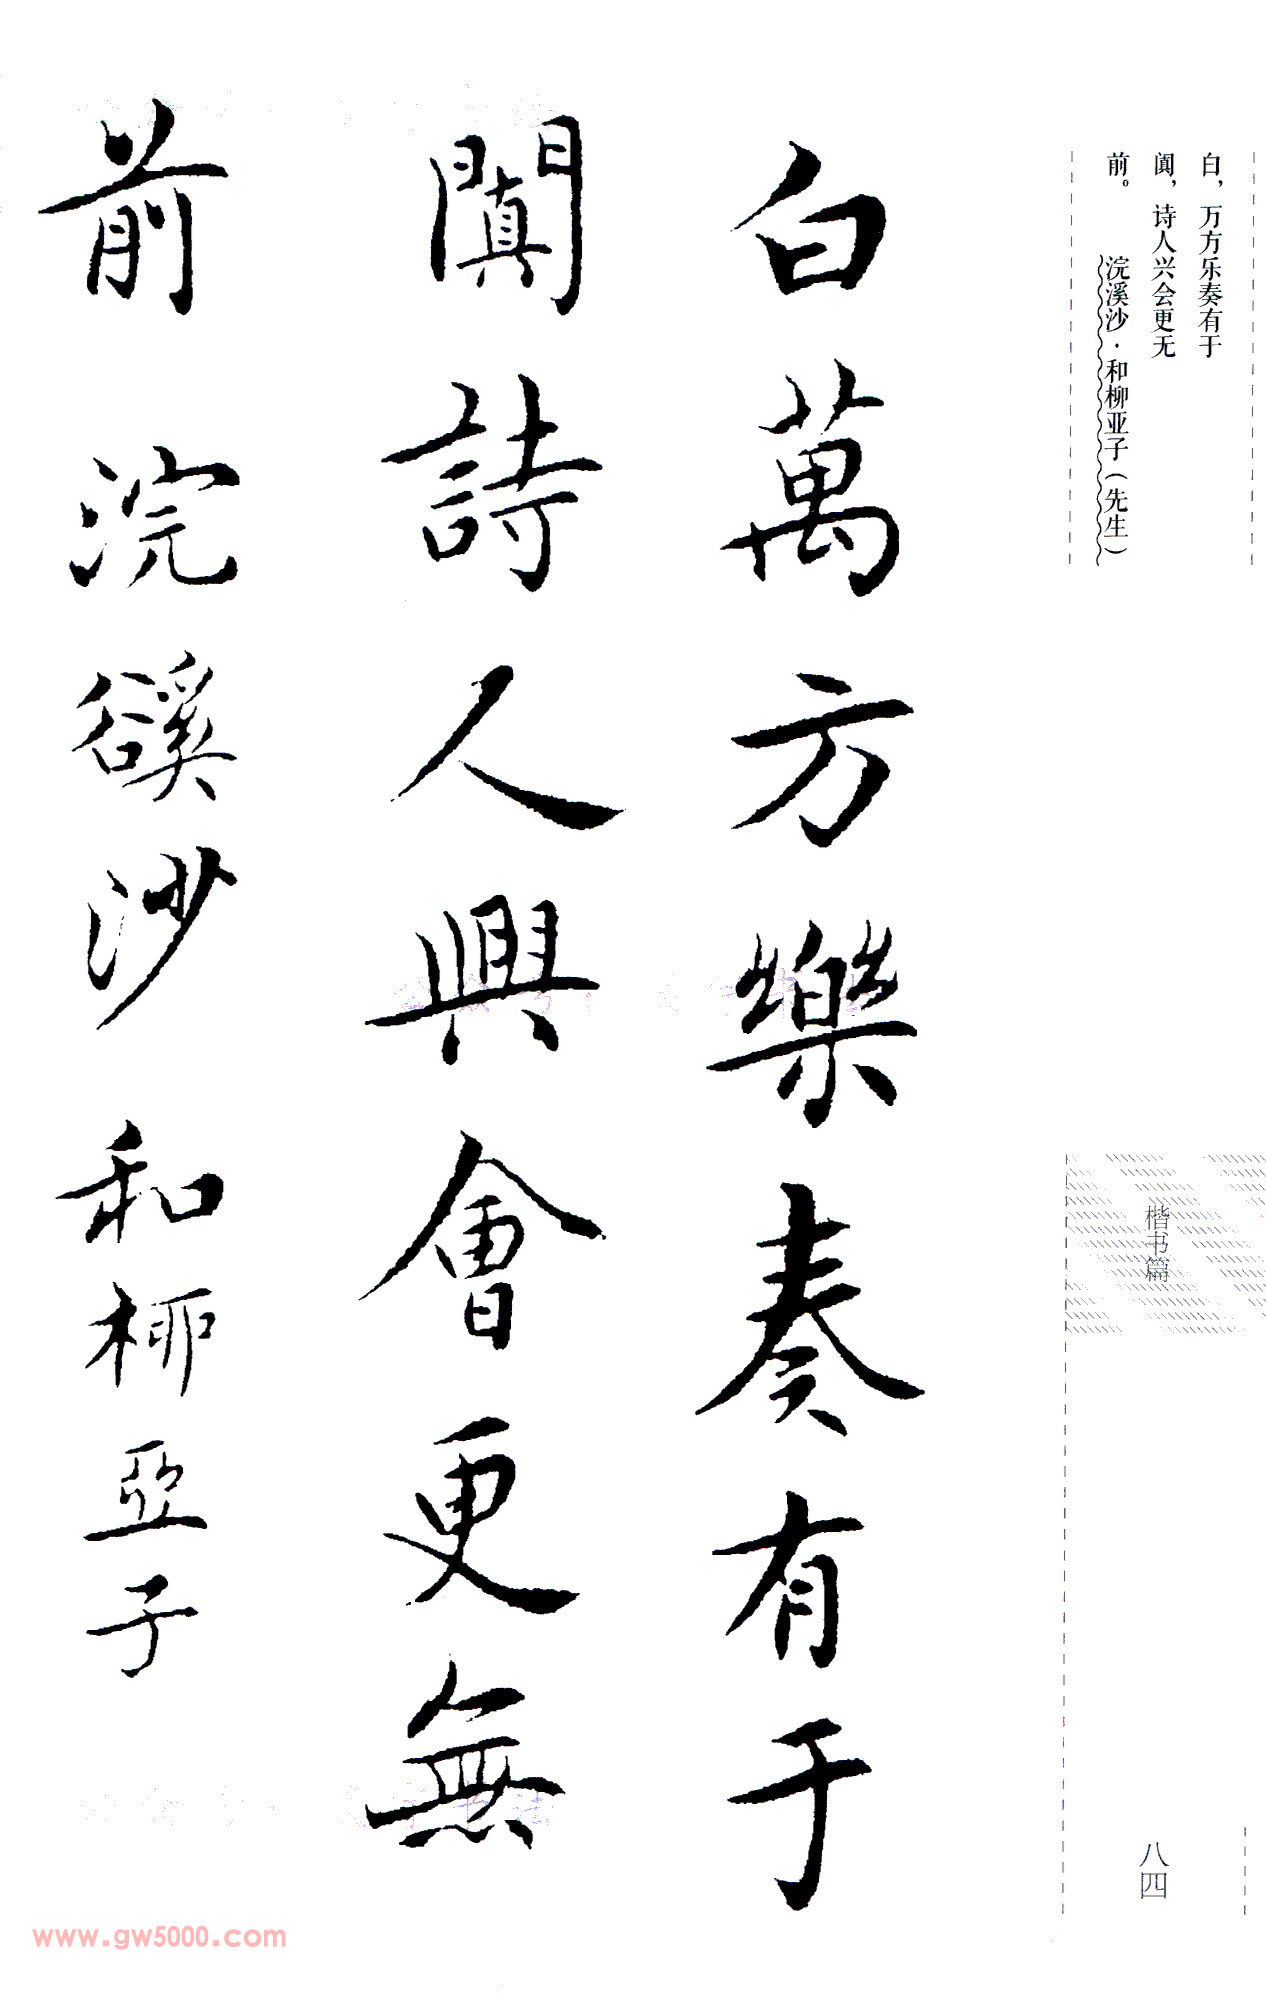 白，万方乐奏有于
阗，诗人兴会更无
前。　浣溪沙·和柳亚子（先生）
楷书篇
八四
白萬方樂奏有于
闐詩人興會更無
前　浣谿沙　和柳亞子
www.gw5000.com